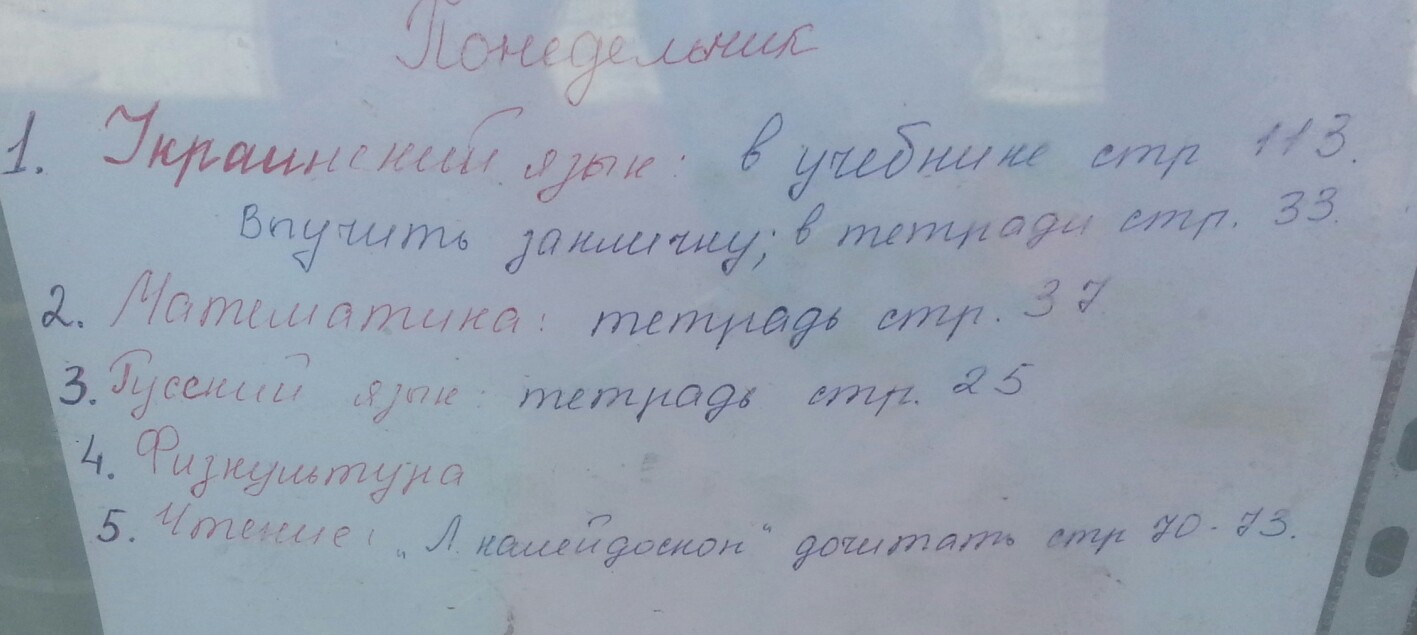 Понедельник
1. Украинский язык: в учебнике стр 113.
Впучить закличку; в тетради стр. 33.
2. Математика: тетрадь стр. 37
3. Русский язык: тетрадь стр. 25
4. Физкультура
5. Чтение: „Л. калейдоскоп“ дочитать стр 70-73.